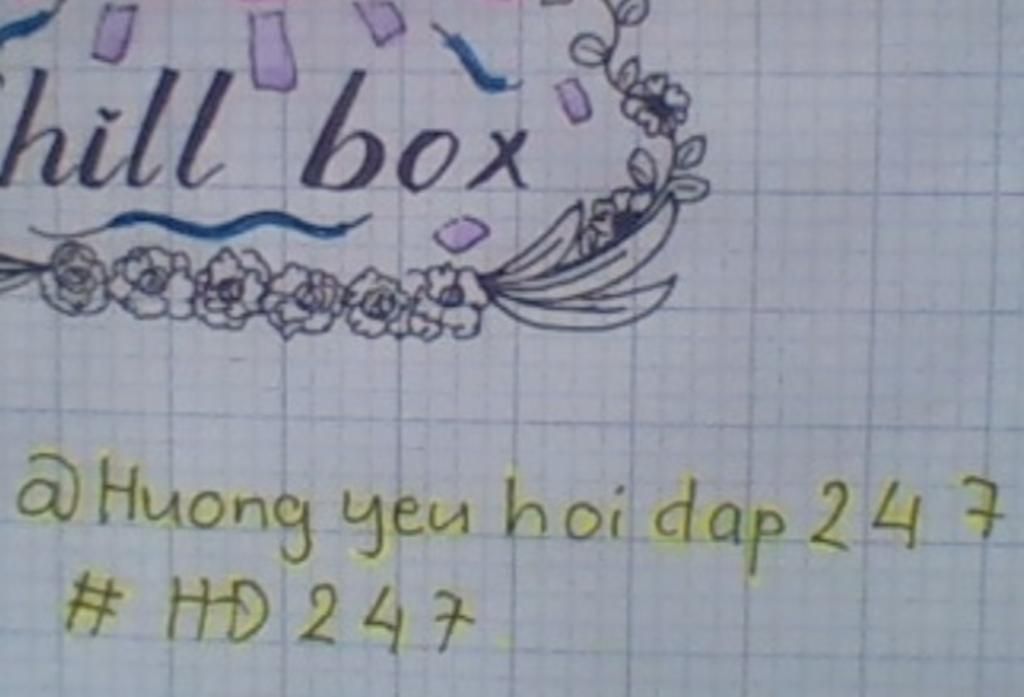 hill box
@Huong yeu hoi dap 247
# HĐ 247